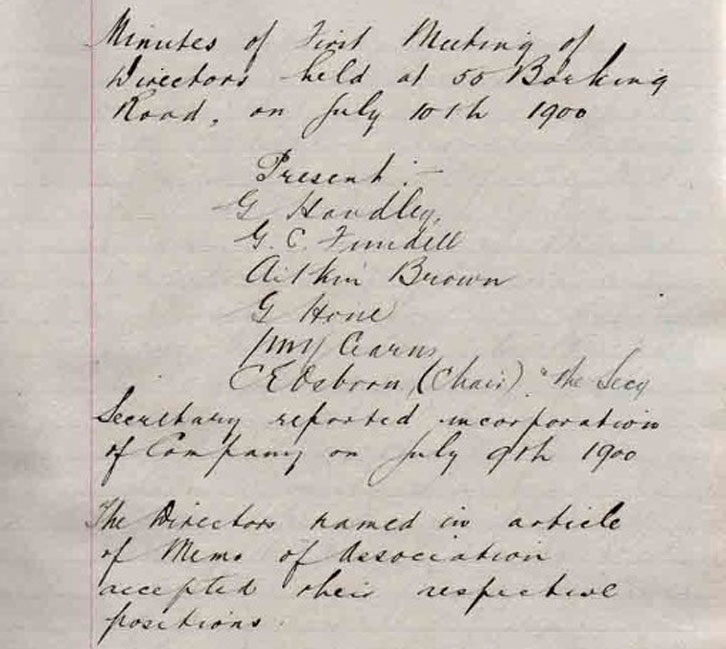 Minutes of First Meeting of
Directors held at 55 Barking
Road, on July 10th 1900
Present :-
G Handley,
G. C. Fundell
Aitkin Brown
G Hone
Cearns
C E Osborn (Chair) "the Secy
Secretary reported incorporation
of Company on July 9th 1900
The Directors named in article
of Memo of Association
accepted their respective
positions.